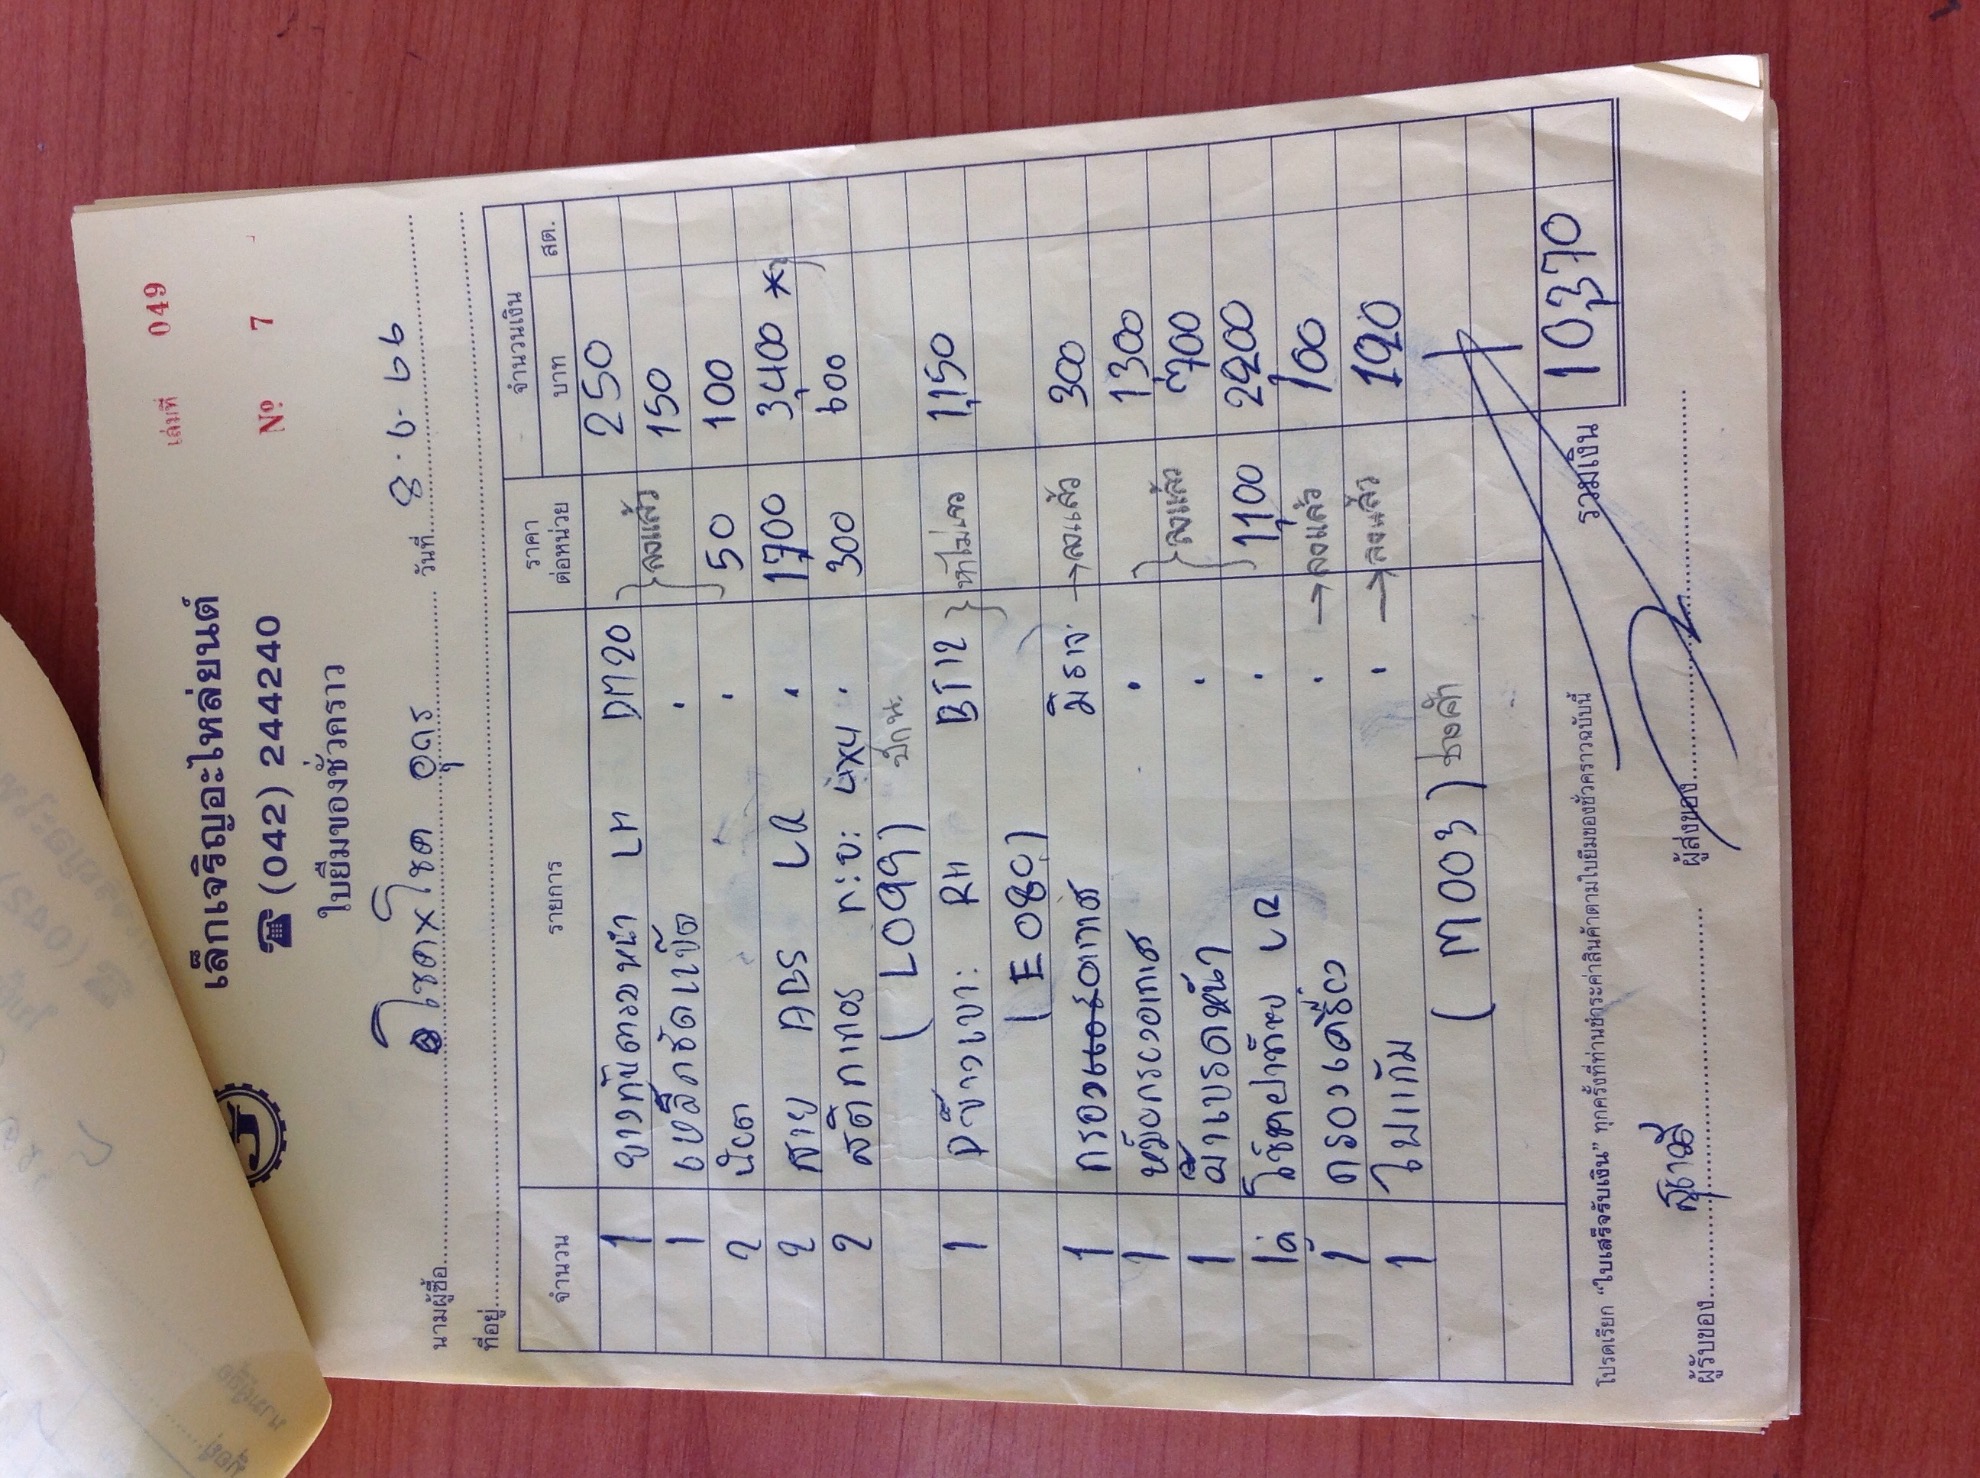 เล่มที่ 049
เล็กเจริญอะไหล่ยนต์
☎ (042) 244240
Nº 7
ใบยืมของชั่วคราว
นามผู้ซื้อ โชคxโชค อุดร วันที่ 8.6.66
ที่อยู่
จำนวน รายการ ราคาต่อหน่วย จำนวนเงิน
บาท สต.
1 ยางกันกระแทก LH DM20 250
1 150
2 น๊อต 50 100
2 สาย ABS LR 1700 3,400 *
2 4x4 300 600
(L099)
1 RH BT12 หาไม่เจอ 1,150
(E080)
1 กรองอากาศ มิราจ → ลงแล้ว 300
1 หม้อกรองอากาศ 1300
1 ผ้าเบรคหน้า 700
1คู่ LR 1,100 2200
1 กรองเครื่อง → ลงแล้ว 100
1 → ลงแล้ว 120
(M003)
ลงแล้ว
ลงแล้ว
รวมเงิน 10,370
โปรดเรียก "ใบเสร็จรับเงิน" ทุกครั้งที่ท่านชำระค่าสินค้าตามใบยืมของชั่วคราวฉบับนี้
ผู้รับของ ผู้ส่งของ